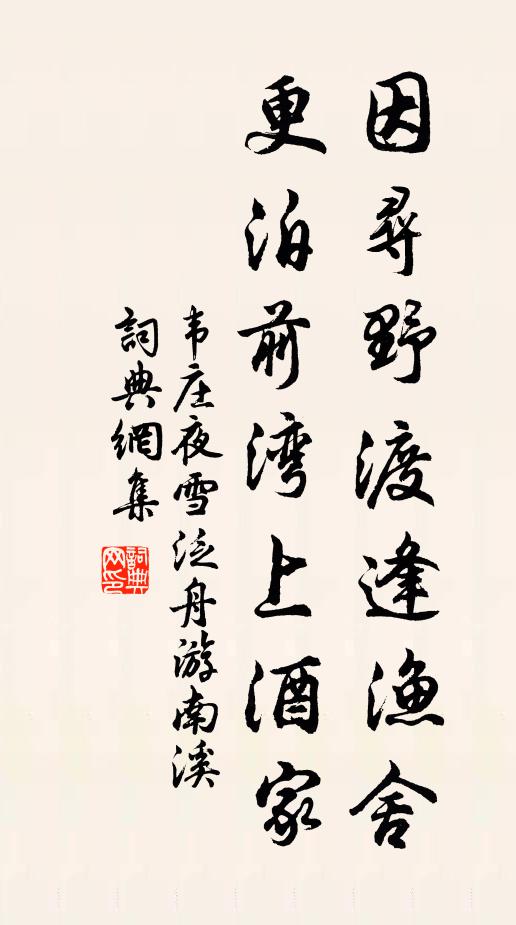 因尋野渡逢漁舍
更泊前湾上酒家
韦庄夜雪泛舟游南溪
詞典網集
詞典网印